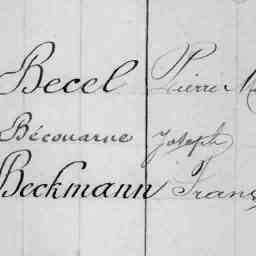 Becel Pierre
Bécouarne Joseph
Beckmann Frans